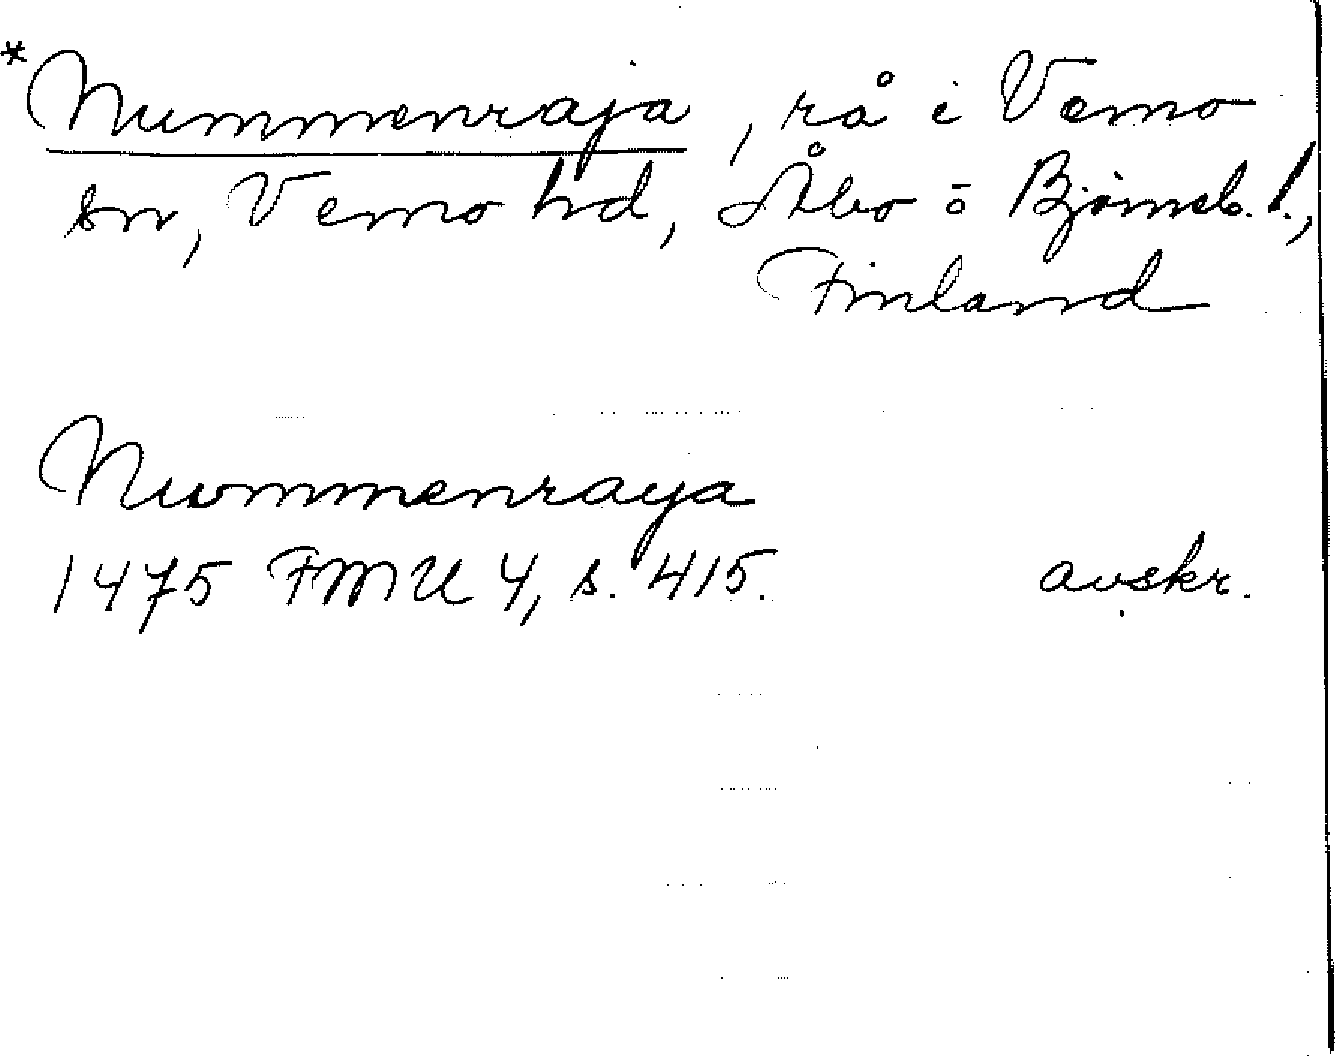 *Nummenraja, rå i Vemo
sn, Vemo hd, Åbo o Björneb. l.,
Finland
Nummenraya
1475 FMU 4, s. 415. avskr.